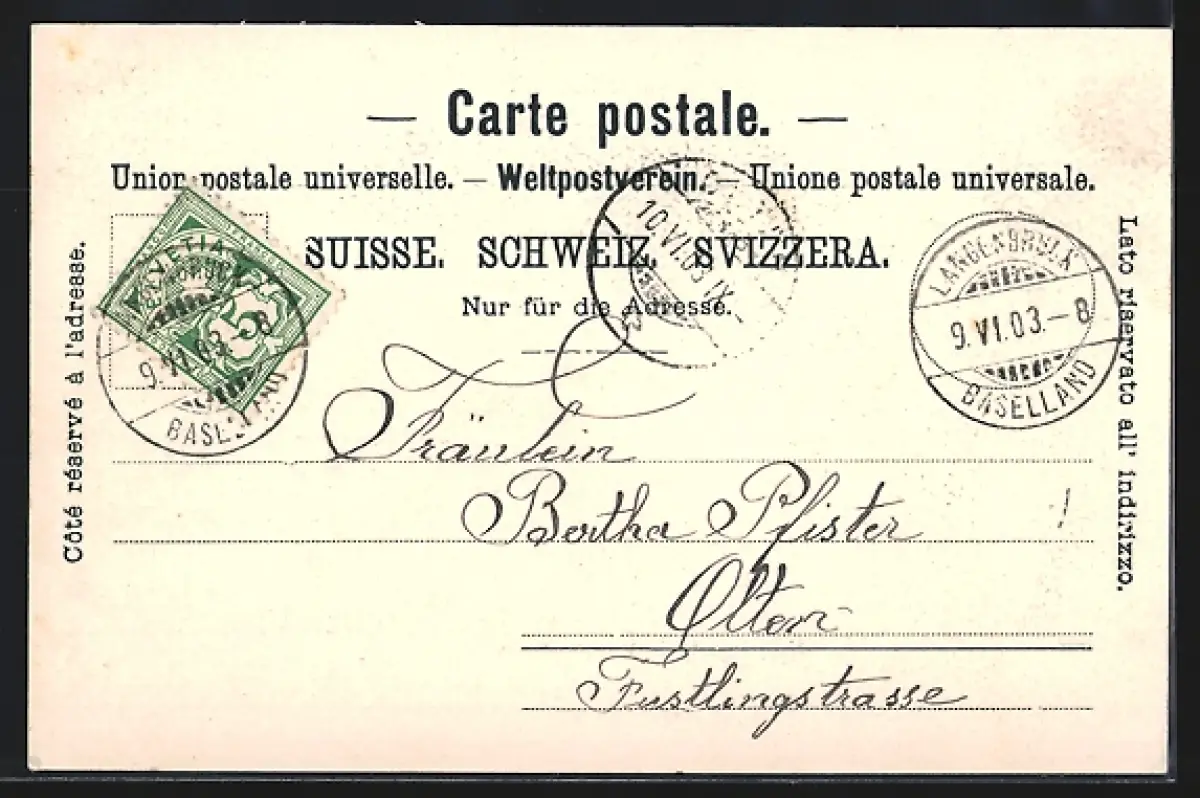 — Carte postale. —
Union postale universelle. — Weltpostverein. — Unione postale universale.
SUISSE. SCHWEIZ. SVIZZERA.
Nur für die Adresse.
Côté réservé à l'adresse.
Lato riservato all' indirizzo.
HELVETIA
5
9.VI.03.-8
BASELLAND
10.VI.03.IX
LANGENBRUCK
9.VI.03.-8
BASELLAND
Fräulein
Bertha Pfister
Olten
Fustlingstrasse